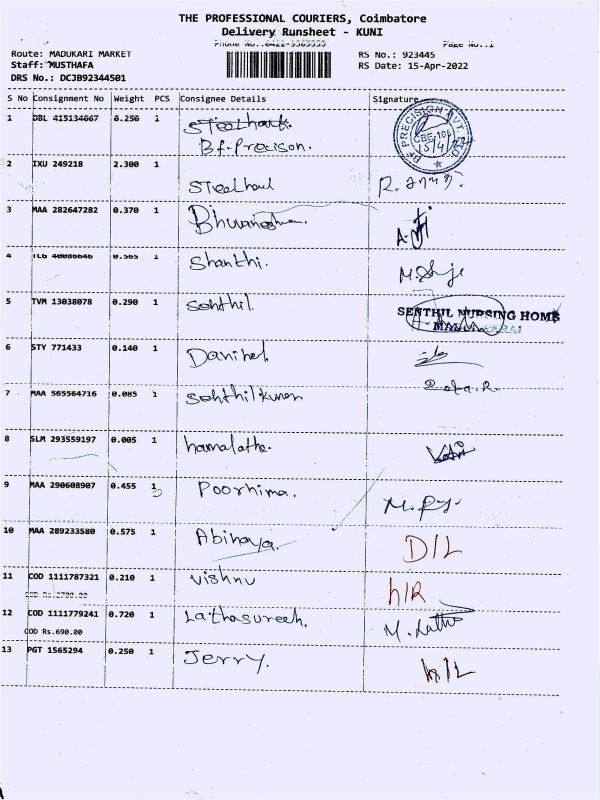 THE PROFESSIONAL COURIERS, Coimbatore
Delivery Runsheet - KUNI
Phone No.:0422-3503555 Page No.:1
Route: MADUKARI MARKET RS No.: 923445
Staff: MUSTHAFA RS Date: 15-Apr-2022
DRS No.: DCJB92344501
S No Consignment No Weight PCS Consignee Details Signature
1 DBL 415134067 0.250 1 Steelhauk.
Bf. Precison.
CBE-105
15/4/
2 IXU 249218 2.300 1 Steelhaul
3 MAA 282647282 0.370 1
4 TCG 40086646 0.565 1 Shanthi.
5 TVM 13038078 0.290 1 Senthil. SENTHIL NURSING HOME
6 STY 771433 0.140 1 Danihel
7 MAA 565564716 0.085 1 Senthilkumar
8 SLM 293559197 0.005 1 hamalatha.
9 MAA 290608907 0.455 1 Poorhima.
10 MAA 289233580 0.575 1 Abinaya. D/L
11 COD 1111787321 0.210 1 Vishnu h/R
COD Rs.2700.00
12 COD 1111779241 0.720 1 Lathasureeh. M. Latha
COD Rs.690.00
13 PGT 1565294 0.250 1 Jerry. h/L